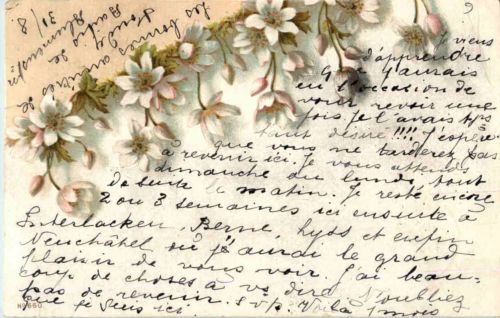 Je viens
d'apprendre
que j'aurais
eu l'occasion de
vous revoir une
fois. Je l'avais tps
tant désiré !!!! J'espère
que vous ne tarderez pas
à revenir ici. Je vous attends
dimanche ou lundi, tout
de suite le matin. Je reste encore
2 ou 3 semaines ici ensuite à
Interlacken, Berne, Lyss et enfin
Neuchâtel où j'aurai le grand
plaisir de vous voir. J'ai beau-
coup de choses à vs dire. N'oubliez
pas de revenir. s.v.p. Voilà 1 mois
que je suis ici.
Les bonnes amitiés de
Bucks de
31/8
No 660